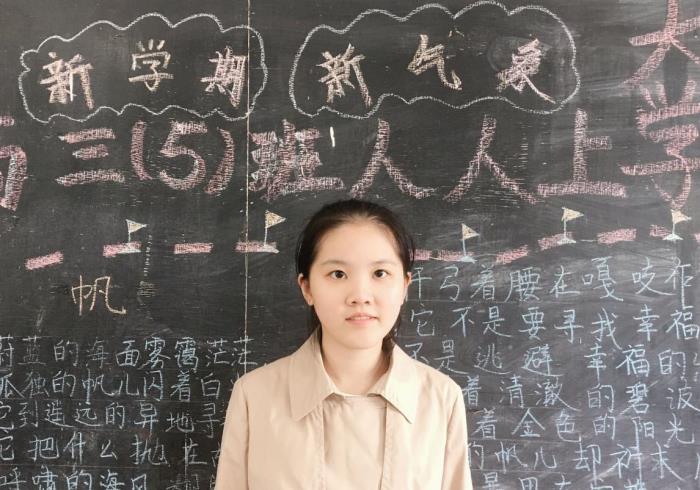 新学期 新气象
大
三(5)班人人上学
帆
蔚蓝的海面雾霭茫茫
孤独的帆儿闪着白
它到遥远的异地寻
它把什么抛在故
呼啸的海风
弓着腰在嘎吱作
它不是要寻找幸福
不是逃避幸福的
着清澈的碧波
着金色的阳光
的帆儿却祈求